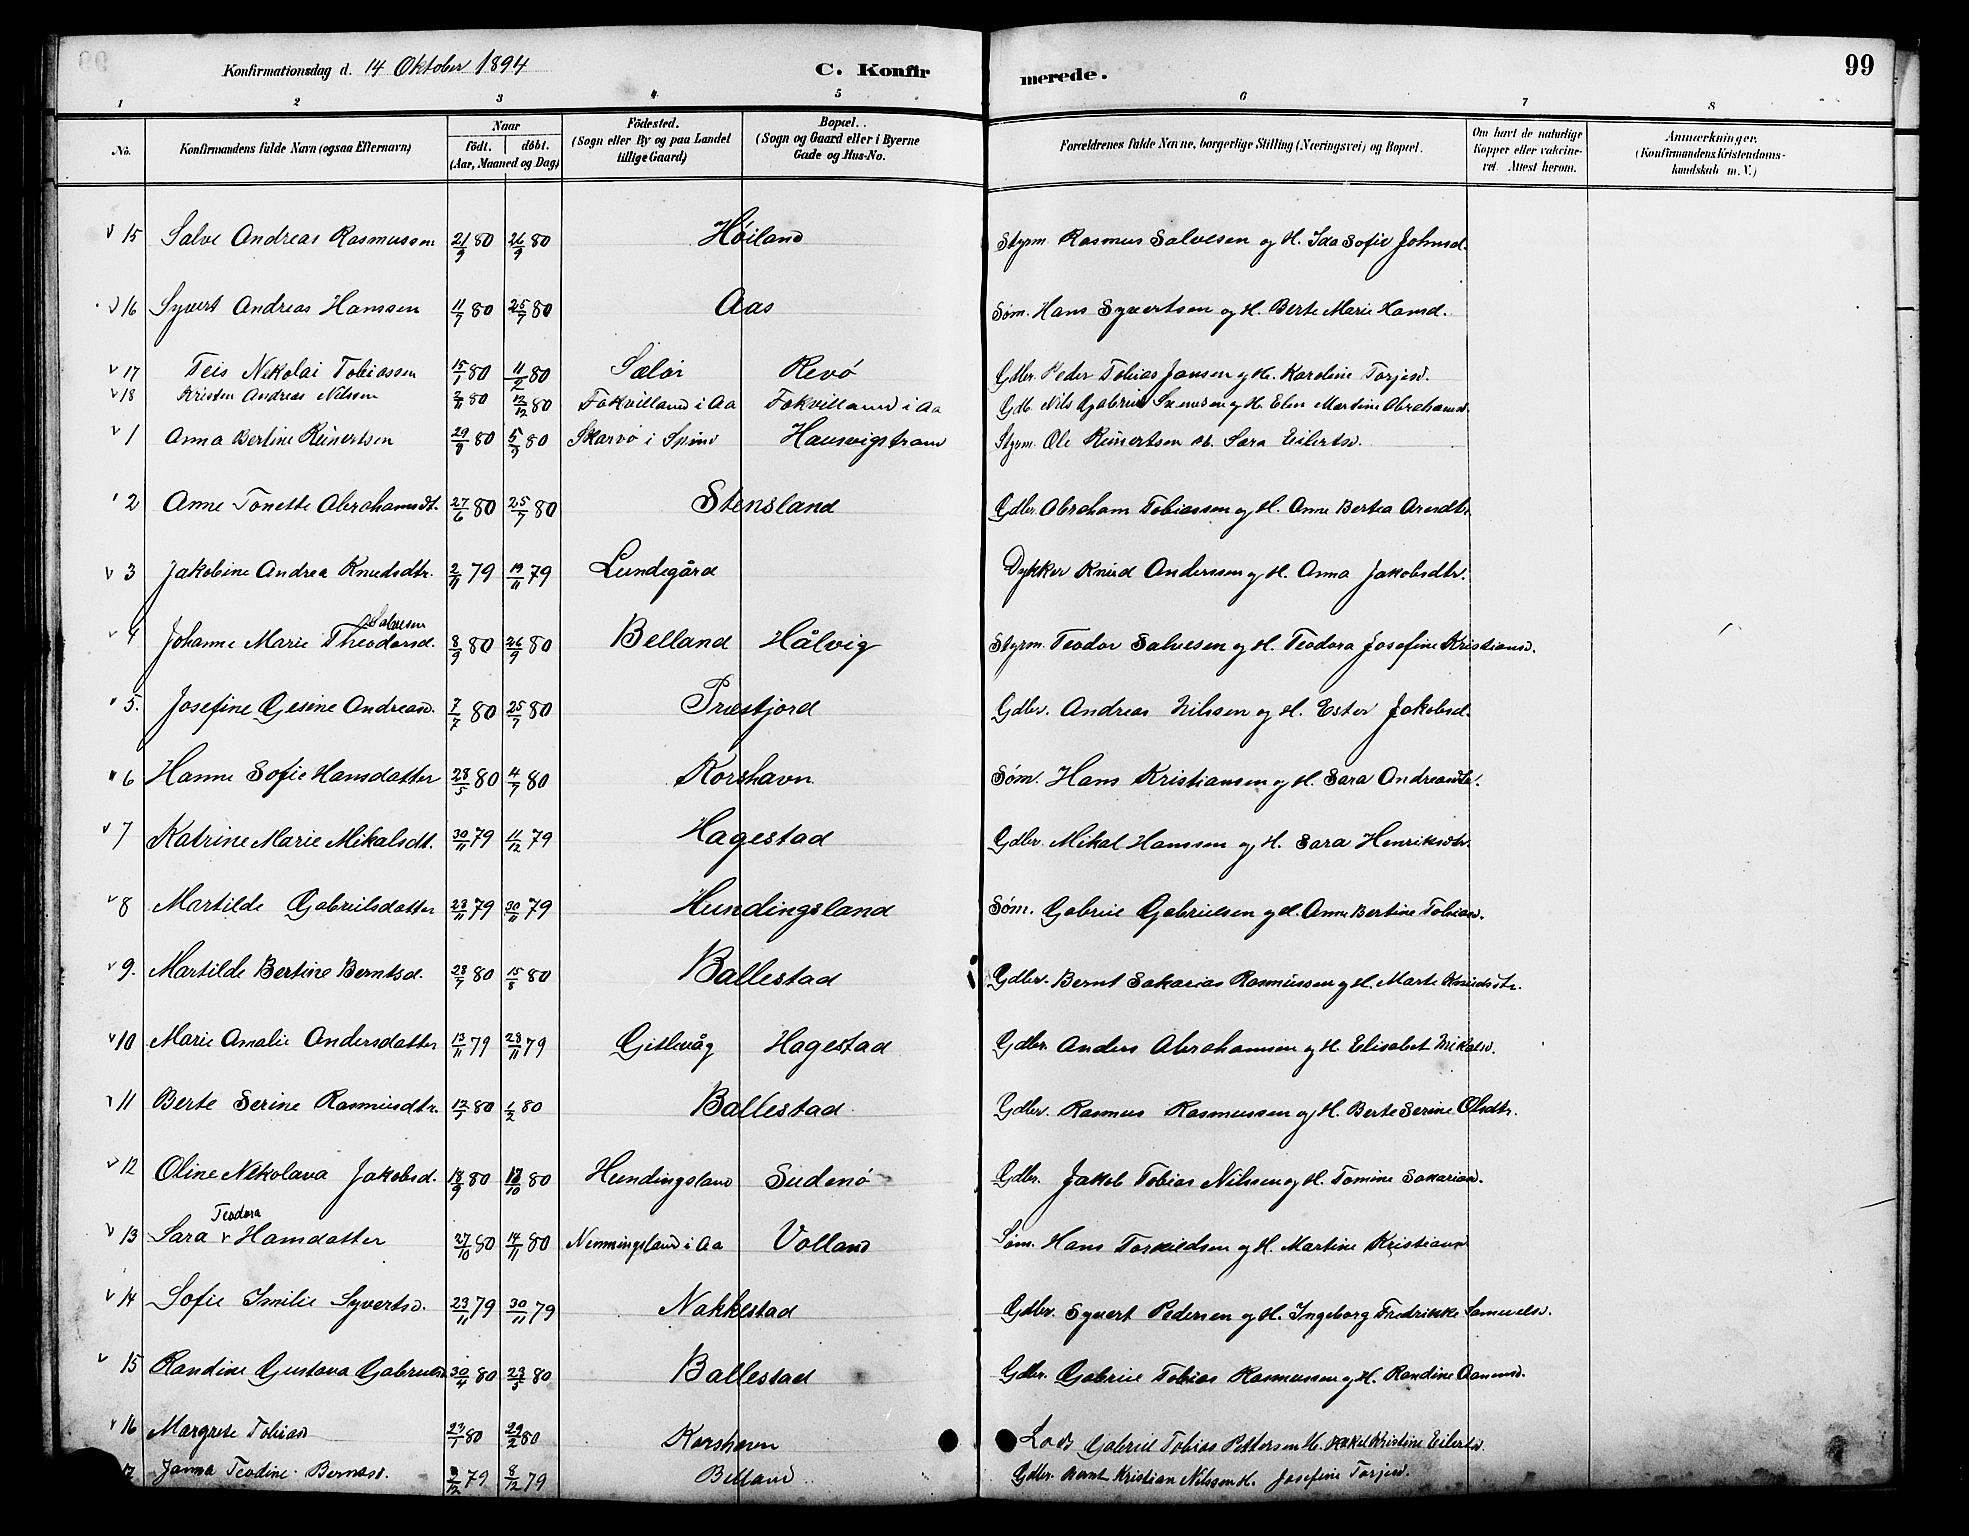 Konfirmationsdag d. 14 Oktober 1894
C. Konfirmerede.
99
1 2 3 4 5 6 7 8
No. Konfirmandens fulde Navn (ogsaa Efternavn) Naar Födt. döbt. (Aar, Maaned og Dag) Födested. (Sogn eller By og paa Landet tillige Gaard) Bopæl. (Sogn og Gaard eller i Byerne Gade og Hus-No. Forældrenes fulde Navne, borgerlige Stilling (Næringsvei) og Bopæl. Om havt de naturlige Kopper eller vakcineret. Attest herom. Anmærkninger, (Konfirmandens Kristendomskundskab m. V.)
v 15 Salve Andreas Rasmussen 21/9 80 26/9 80 Höiland Styrm. Rasmus Salvesen og H. Ida Sofie Johnsd.
v 16 Syvert Andreas Hanssen 11/7 80 25/7 80 Aas Søm. Hans Syvertsen og H. Berte Marie Hansd.
v 17 Teis Nikolai Tobiassen 15/1 80 11/2 80 Sælör Revö Gdbr. Peder Tobias Jansen og H. Karoline Torjesd.
v 18 Kristen Andreas Nilsen 2/11 80 12/12 80 Fokvilland i Aa Fokvilland i Aa Gdb. Nils Gabriel og H. Elen Martine Abrahamsd.
v 1 Anna Bertine Reinertsen 80 80 Skarvö i Spind Hausvigstrand Styrm. Ole Reinertsen H. Sara Eilertsd.
2 Anne Tonette Abrahamsdt. 27/6 80 25/7 80 Stensland Gdbr. Abraham Tobiassen og H. Anne Bertea Arndtr.
v 3 Jakobine Andrea Knudsdtr. 2/11 79 19/11 79 Lundegård Dykker Knud Anderssen og H. Anna Jakobsdtr.
v 4 Johanne Marie Theodorsd. Salvesen 8/9 80 26/9 80 Belland Hålvig Styrm. Teodor Salvesen og H. Teodora Josefine Kristiansd.
5. Josefine Gesine Andreasd. 7/7 80 25/7 80 Præstjord Gdbr. Andreas Nilssen og H. Ester Jakobsd.
6 Hanne Sofie Hansdatter 28/5 80 4/7 80 Korshavn Søm. Hans Kristiansen og H. Sara Andreasdtr.
v 7 Katrine Marie Mikalsdt. 30/11 79 11/12 79 Hagestad Gdbr. Mikal Hanssen og H. Sara Henriksdtr.
v 8 Martilde Gabrielsdatter 23/11 79 30/11 79 Hundingsland Søm. Gabriel Gabrielsen og H. Anne Bertine Tobiasd.
v 9. Martilde Bertine Berntsd. 28/7 80 15/8 80 Ballestad Gdbr. Bernt Sakarias Rasmussen og H. Marte Knudsdtr.
v 10 Marie Amalie Andersdatter 13/11 79 23/11 79 Gitlevåg Hagestad Gdbr. Anders Abrahamsen og H. Elisabet Mikalsd.
v 11 Berte Serine Rasmusdtr. 12/1 80 1/2 80 Ballestad Gdbr. Rasmus Rasmussen og H. Berte Serine Olsdtr.
v 12 Oline Nikolava Jakobsd. 18/9 80 17/10 80 Hundingsland Sudenö Gdbr. Jakob Tobias Nilssen og H. Tomine Sakariasd.
v 13 Sara Teodora Hansdatter 27/10 80 14/11 80 Nenningsland i Aa Volland Søm. Hans Torkildsen og H. Martine Kristiansd.
v 14 Sofie Imilie Syvertsd. 23/11 79 30/11 79 Nakkestad Gdbr. Syvert Pedersen og H. Ingeborg Fredrikke Samuelsd.
v 15 Randine Gustava Gabrielsd. 30/4 80 23/5 80 Ballestad Gdbr. Gabriel Tobias Rasmussen og H. Randine Aanensd.
v 16 Margrete Tobiasd. 23/1 80 22/2 80 Korshavn Lods Gabriel Tobias Pettersen H. Rakel Kristine Eilertsd.
Janna Teodine Berntsd. 2/12 79 8/12 79 Belland Gdbr. Bernt Kristian Nilssen H. Josefine Torjesd.